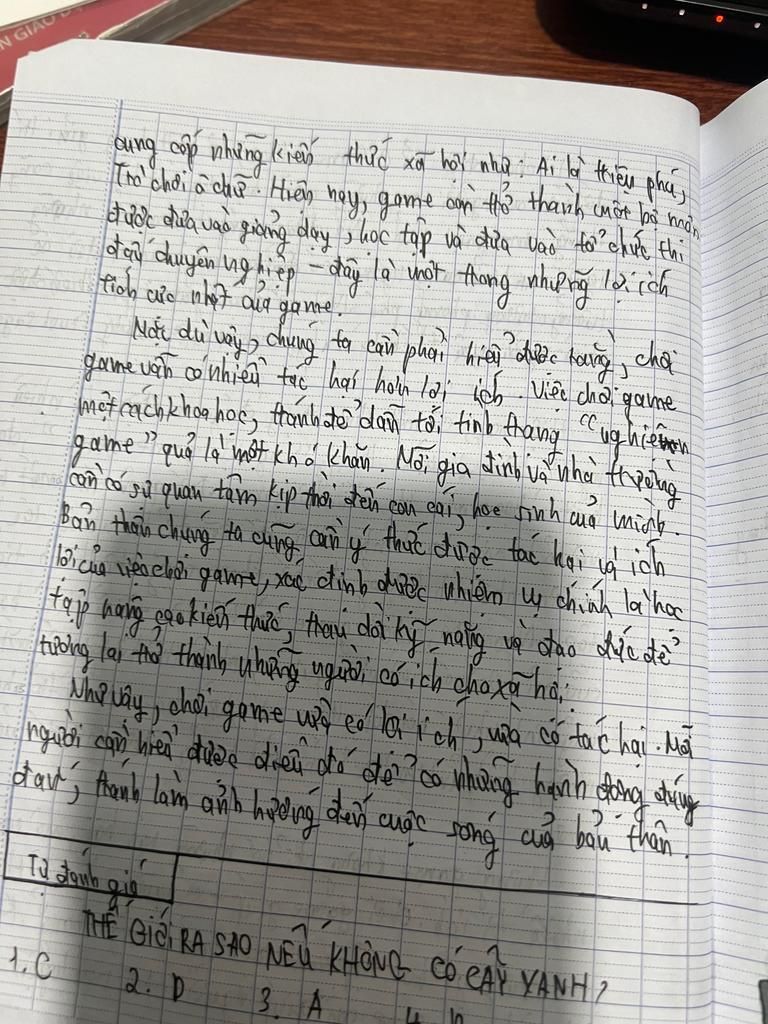 N GIÁO D
cung cấp những kiến thức xã hội như: Ai là triệu phú,
Trò chơi ô chữ. Hiện nay, game còn trở thành một bộ môn
được đưa vào giảng dạy, học tập và đưa vào tổ chức thi
đấu chuyên nghiệp – đây là một trong những lợi ích
tích cực nhất của game.
Mặc dù vậy, chúng ta cần phải hiểu được rằng, chơi
game vẫn có nhiều tác hại hơn lợi ích. Việc chơi game
một cách khoa học, tránh để dẫn tới tình trạng "nghiện
game" quả là một khó khăn. Mỗi gia đình và nhà trường
cần có sự quan tâm kịp thời đến con cái, học sinh của mình.
Bản thân chúng ta cũng cần ý thức được tác hại và ích
lợi của việc chơi game, xác định được nhiệm vụ chính là học
tập nâng cao kiến thức, trau dồi kỹ năng và đạo đức để
tương lai trở thành những người có ích cho xã hội.
Như vậy, chơi game vừa có lợi ích, vừa có tác hại. Mỗi
người cần hiểu được điều đó để có những hành động đúng
đắn, tránh làm ảnh hưởng đến cuộc sống của bản thân.
Tự đánh giá
THẾ GIỚI RA SAO NẾU KHÔNG CÓ CÂY XANH?
1. C 2. D 3. A